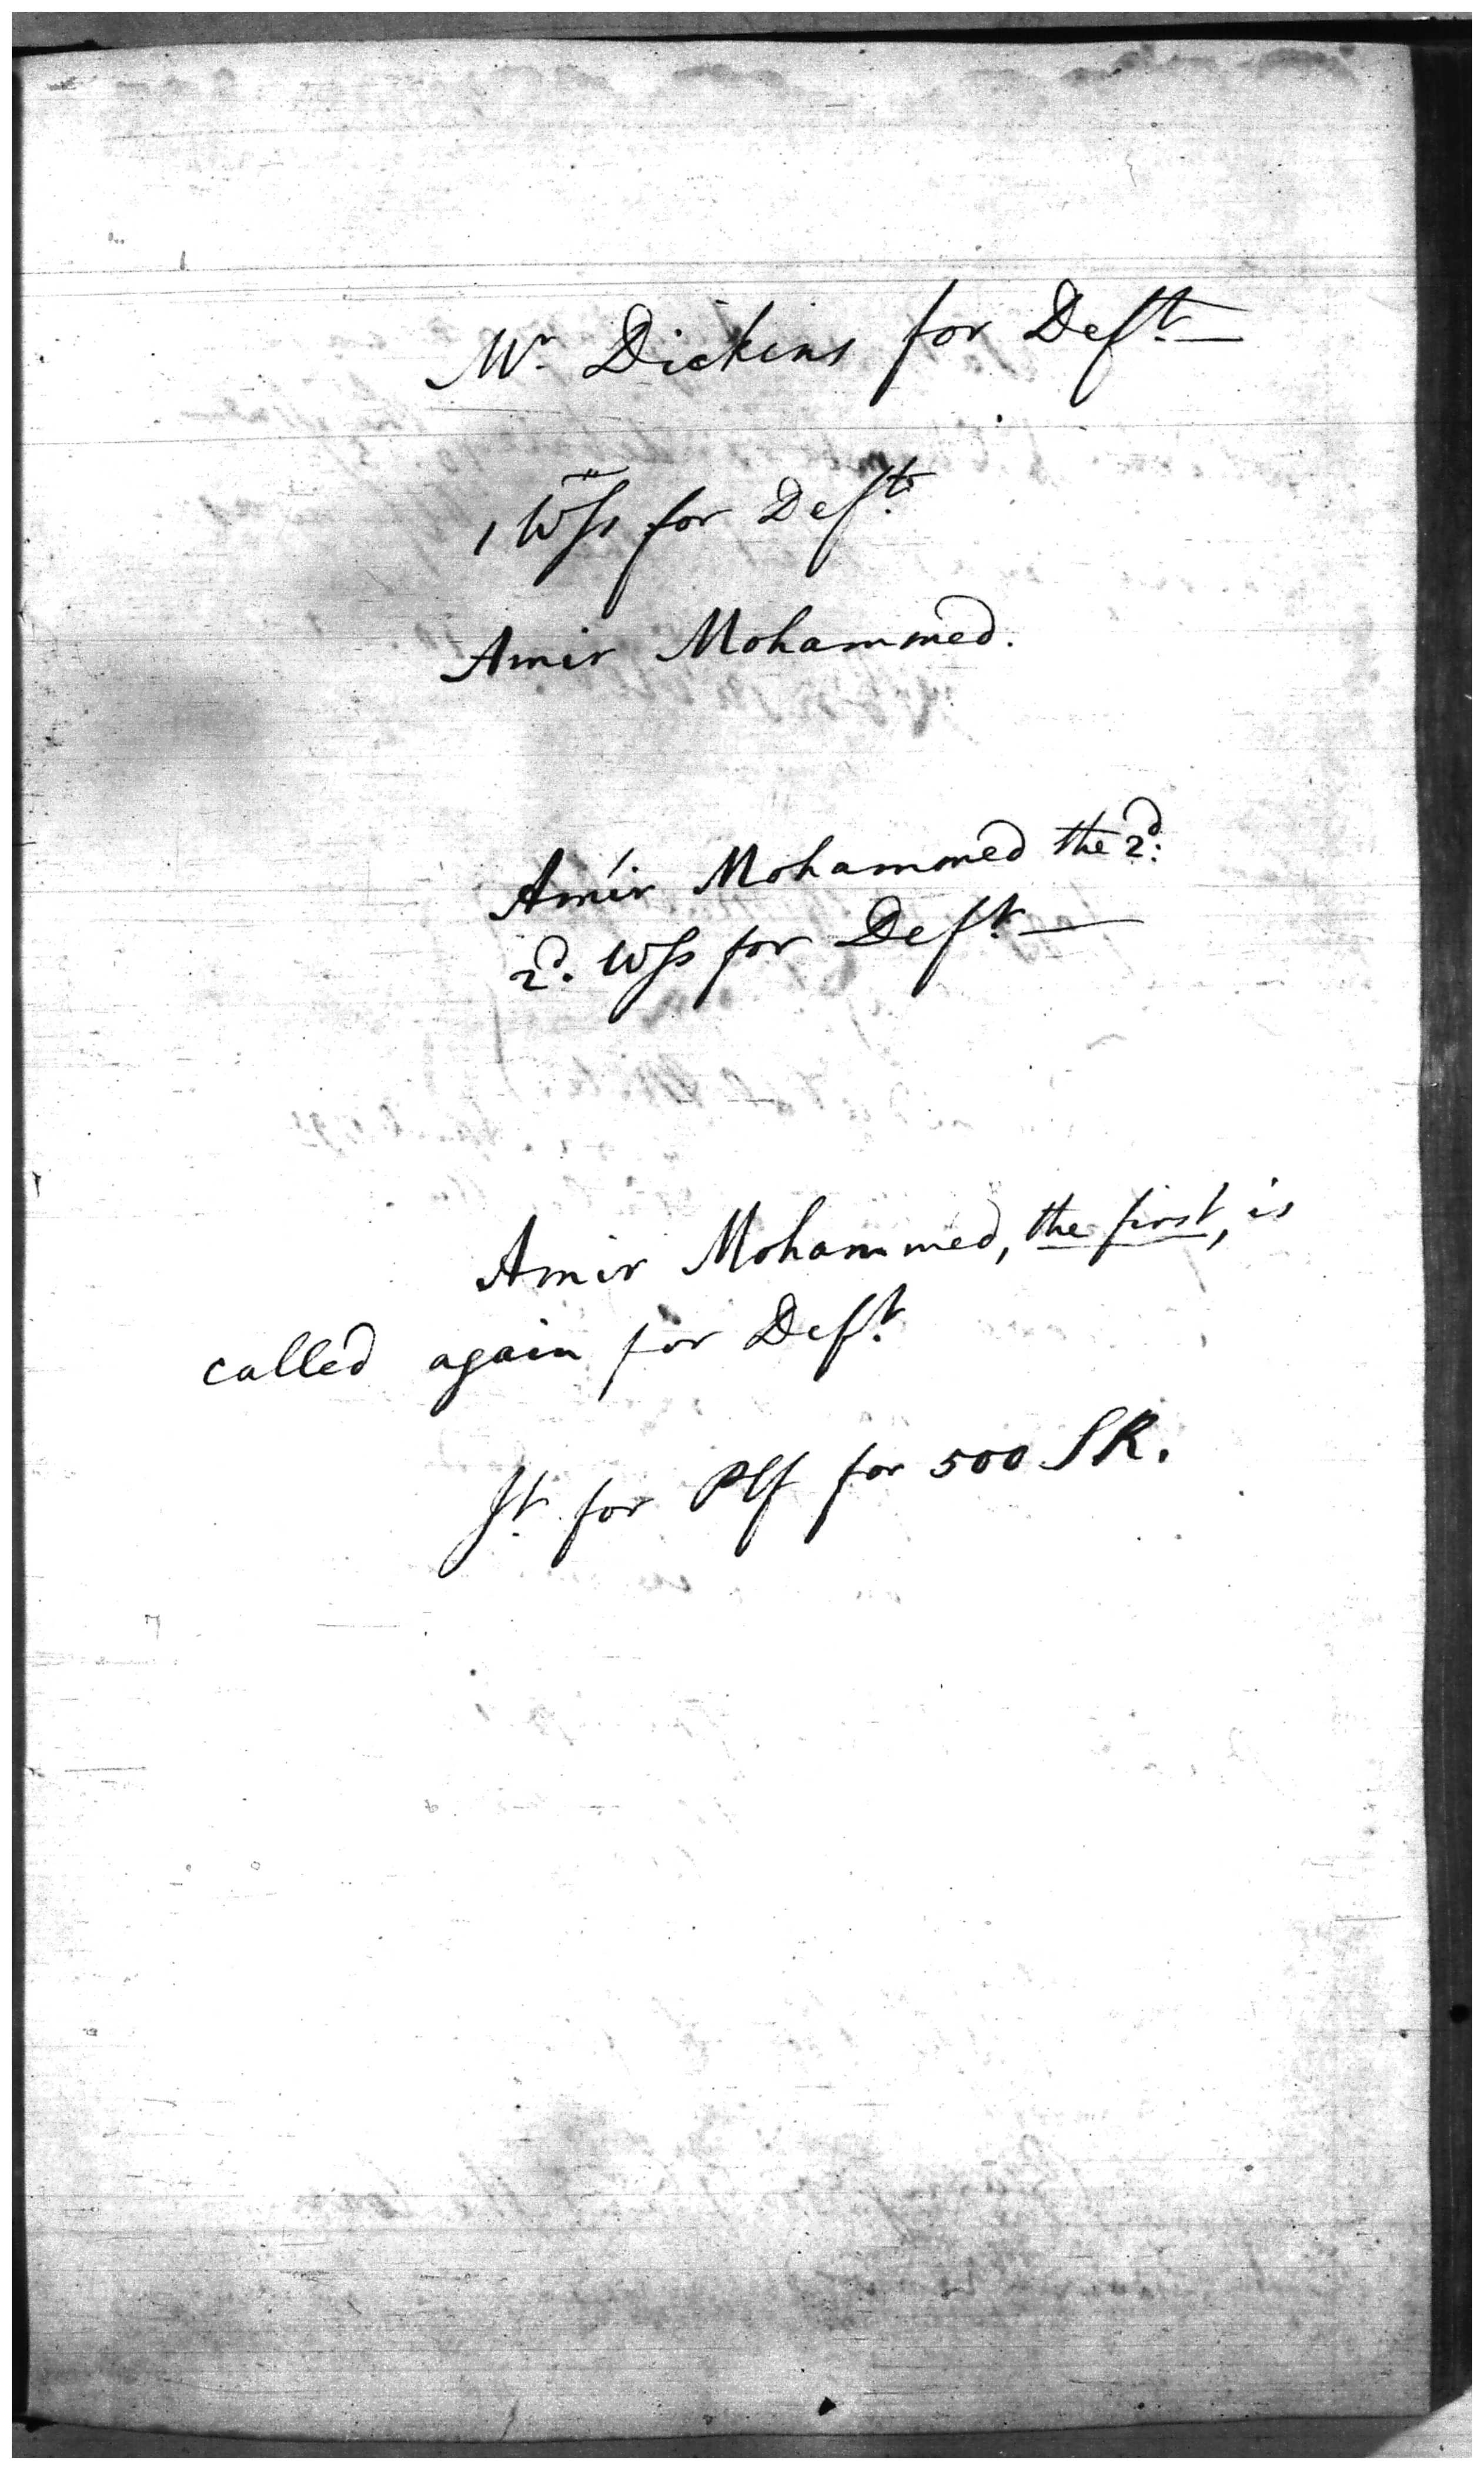 Mr. Dickins for Deft. —
1 Wss for Deft.
Amir Mohammed.
Amir Mohammed the 2d.
2d. Wss for Deft. —
Amir Mohammed, the first, is
called again for Deft.
Jt. for Plf for 500 SR.